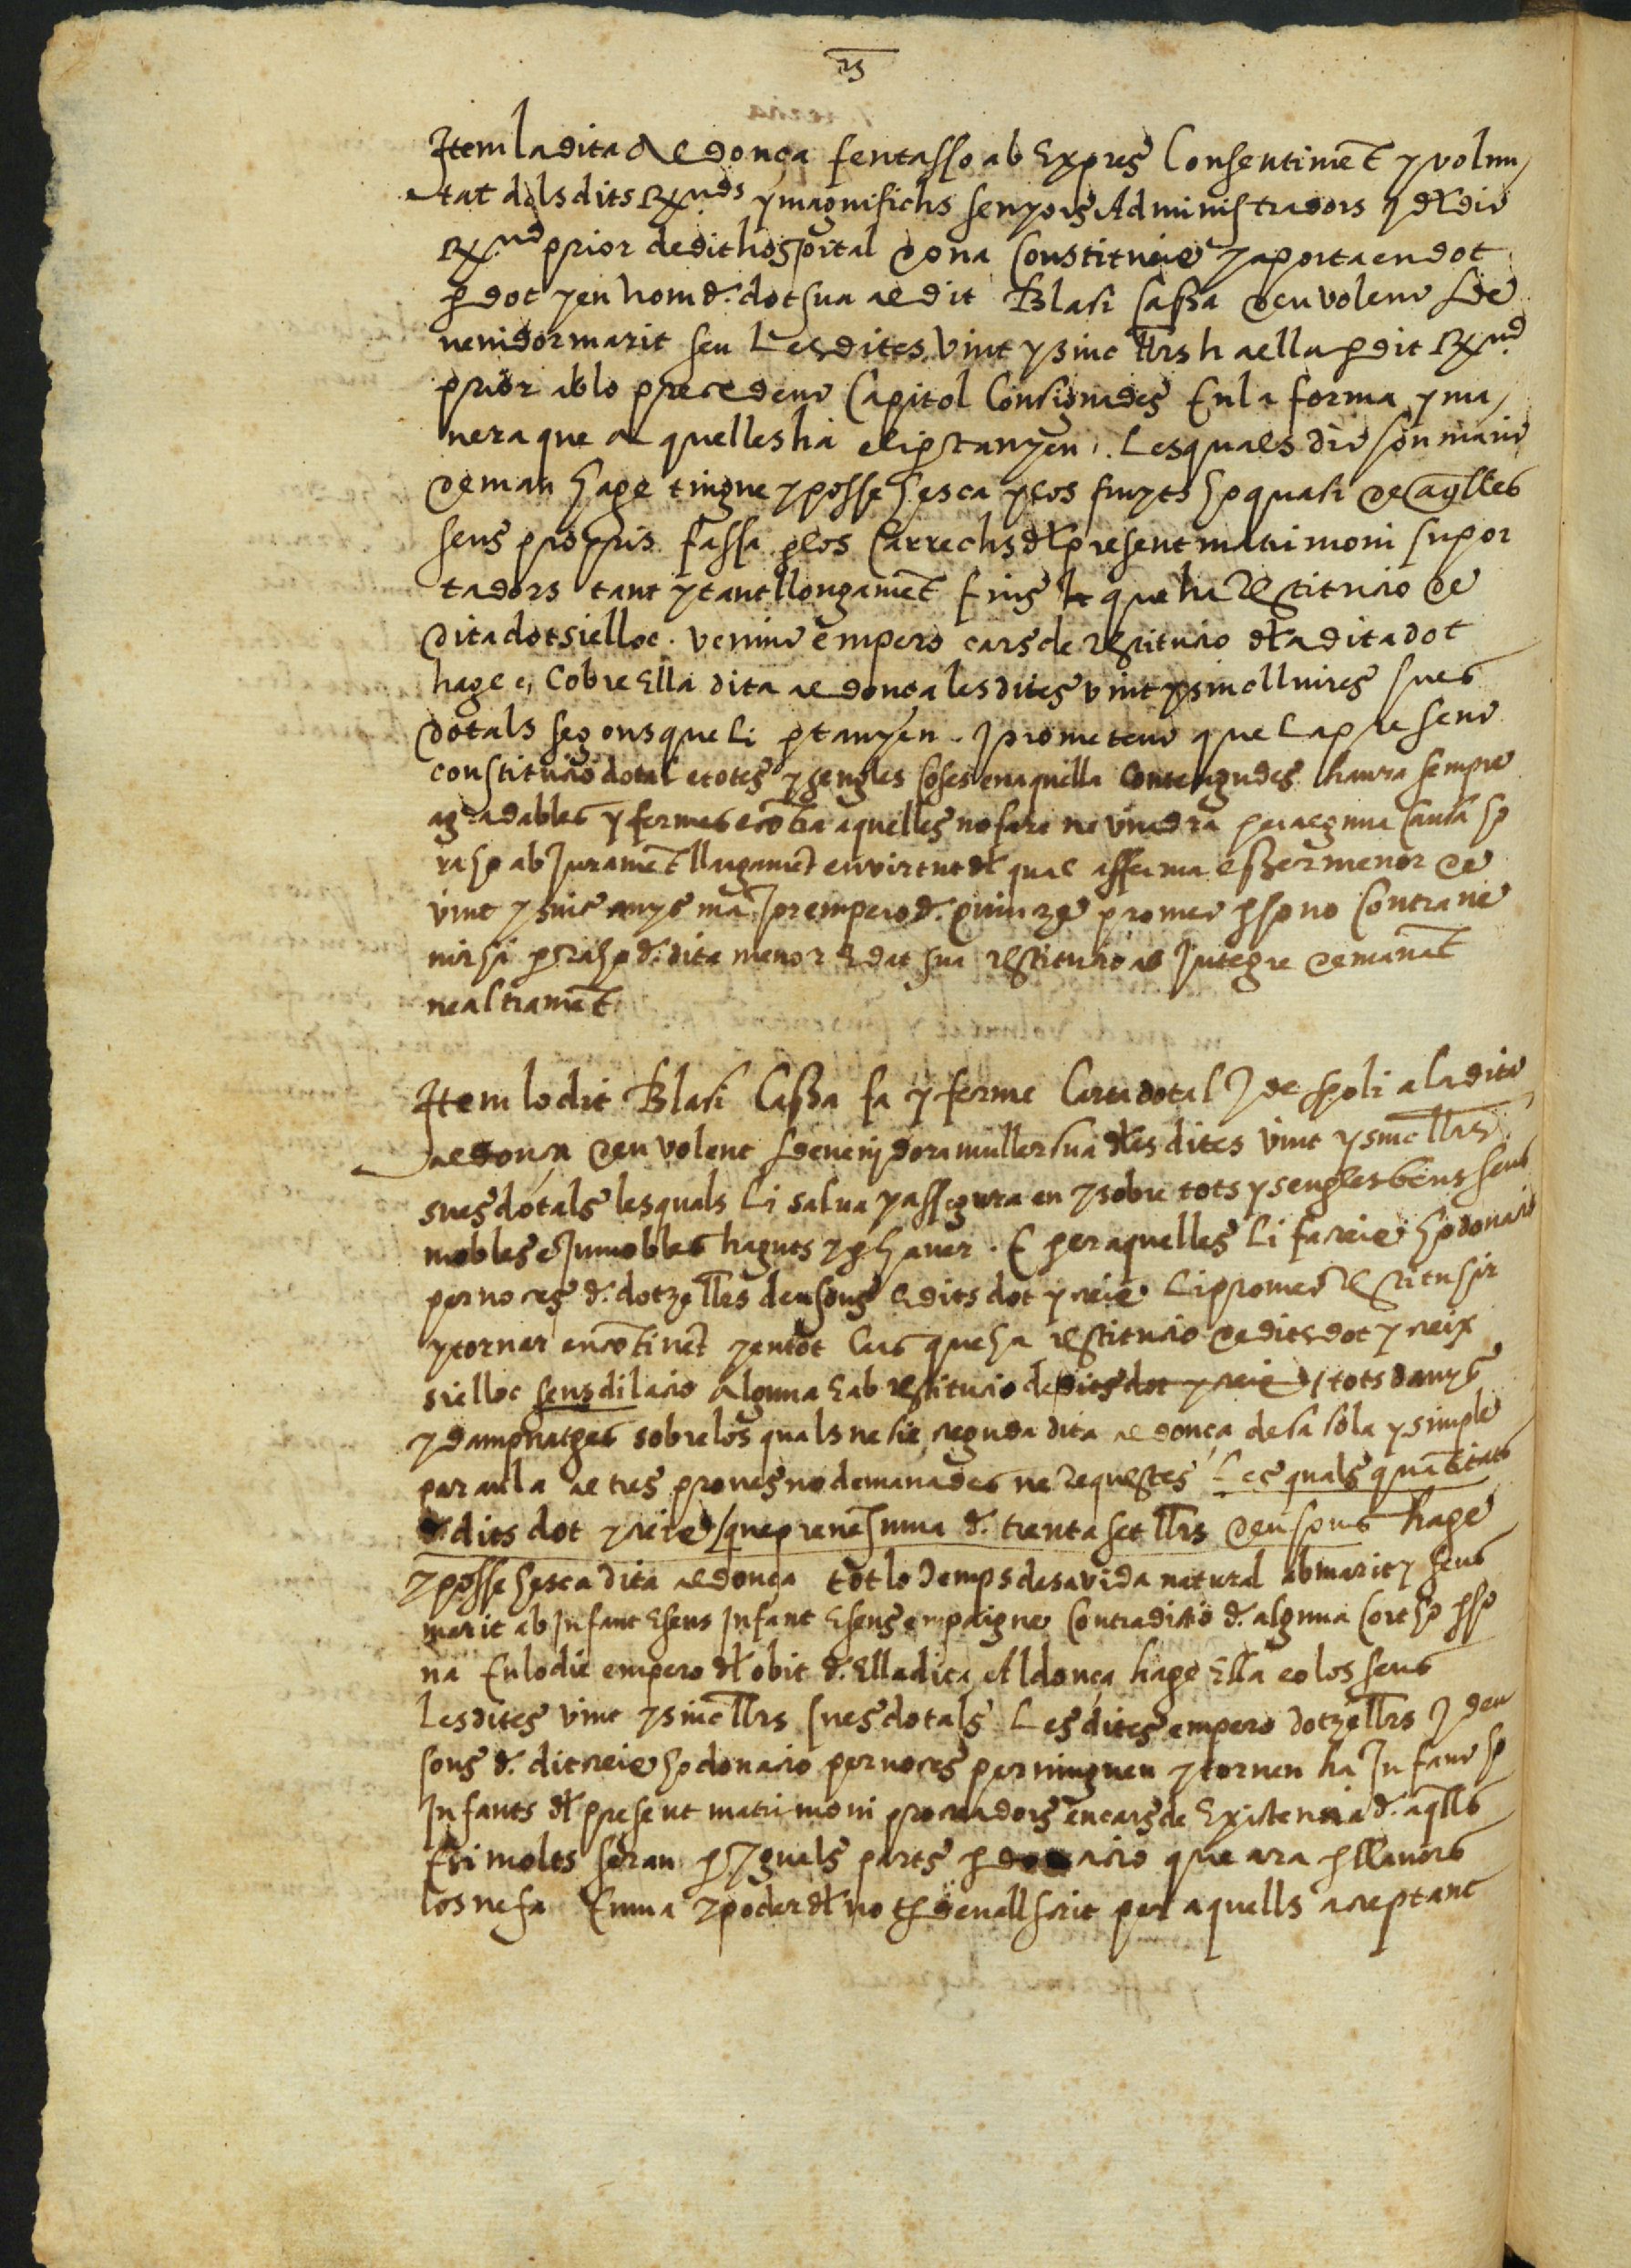 Item la dita Aldonça fent asso ab exprés consentiment y volun
tat dels dits Rx.nds y magnifichs senyors Administradors y del dit
Rx.nd prior de dit hospital dona constitueix y aporta en dot
per dot y en nom de dot sua al dit Blasi Cassa Deu volent sde
venidor marit seu Les dites vint y sinc llrs ha ella per dit Rx.nd
prior ab lo precedent Capitol Consignades En la forma y ma
nera que a quelles ha e li pertanyen. Les quals dit son marit
deman hage tingue y possehesca y los fruyts ho quasi de aqlles
seus propris fassa per los carrechs del present matrimoni supor
tadors tant y tant llongament fins que ha restitucio de
dita dot sie lloc. venint empero cars de restitucio de la dita dot
hage e cobre Ella dita aldonça les dites vint y sinc lliures sues
dotals segons que li pertanyen. Y prometent que la present
constitucio dotal e totes y sengles coses en aquella contengudes haura sempre
agradables y fermes e contra aquelles no fara ne vindra per alguna causa ho
raho ab Jurament llargament en virtut del qual afferma esser menor de
vint y sinc anys major empero de quinze promet per ho no contrave
nir hi per raho de dita menor edat sua restitucio ab Integre demanant
ne altrament

Item lo dit Blasi Cassa fa y ferme Carta dotal y de spoli a la dita
aldonça deu volent sdevenjdora muller sua de les dites vint y sinc llrs
sues dotals les quals li salva y assegura en y sobre tots y sengles bens seus
mobles e Inmobles haguts y per haver. E per aquelles li fa creix ho donacio
per noces de dotze llrs de ussons e dits dot y creix li promet restituhir
y tornar encontinent y en tot cas que ha restitucio de dits dot y creix
sie lloc sens dilacio alguna e ab restitucio de dits dot y creix tots danys
y dampnatges sobre los quals ne sie creguda dita aldonça de sa sola y simple
paraula altres proves no demanades ne requestes Les quals quantitats
de dits dot y creix que prenen suma de trenta set llrs deu sous hage
y possehesca dita aldonça tot lo temps de sa vida natural ab marit y sens
marit ab Infant e sens Infant e sens empaig ne contradictio de alguna cort ho perso
na En lo die empero del obit de Ella dita Aldonça hage Ella e o los seus
Les dites vint y sinc llrs sues dotals Les dites empero dotze llrs y deu
sous de dit creix ho donacio per noces pervinguen y tornen ha Infant ho
Infants del present matrimoni procreadors en cars de existencia de aqlls
E si molts seran per yguals parts per donacio que ara per llavors
los ne fa En ma y poder del not. devall scrit per aquells acceptant